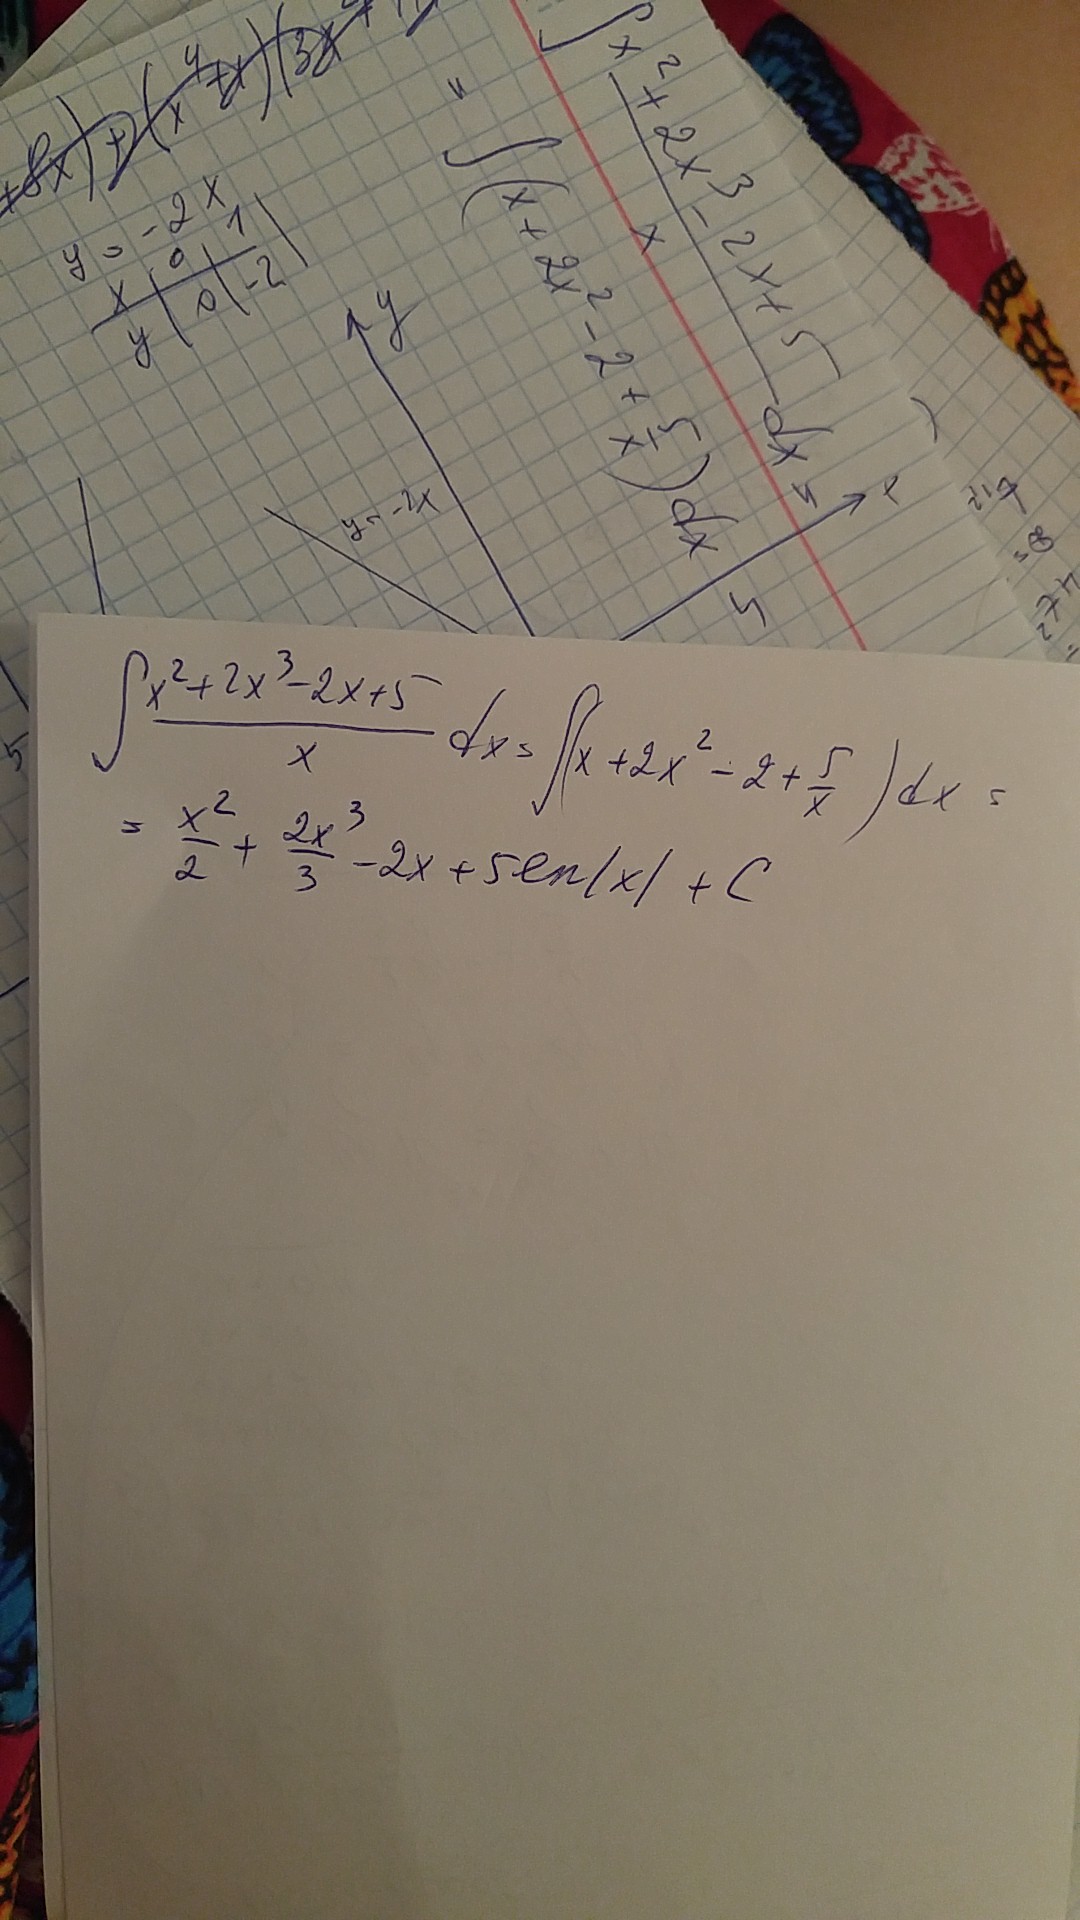 +8x)+2(x⁴+x)(3x²+
y = -2x
x | 0 | 1
y | 0 | -2
y
y = -2x
x
∫ (x²+2x³-2x+5)/x dx =
= ∫(x+2x²-2+5/x)dx
∫ (x²+2x³-2x+5)/x dx = ∫(x+2x²-2+5/x)dx =
= x²/2 + 2x³/3 -2x+5ln|x| + C